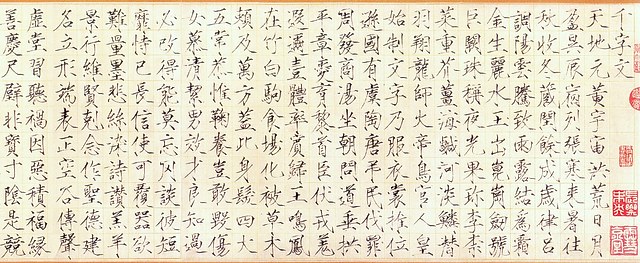 千字文
天地元黃宇宙洪荒日月
盈昃辰宿列張寒來暑往
秋收冬藏閏餘成歲律呂
調陽雲騰致雨露結爲霜
金生麗水玉出崑崗劒號
巨闕珠稱夜光果珍李柰
菜重芥薑海鹹河淡鱗潛
羽翔龍師火帝鳥官人皇
始制文字乃服衣裳推位
遜國有虞陶唐弔民伐罪
周發商湯坐朝問道垂拱
平章愛育黎首臣伏戎羌
遐邇壹體率賓歸王鳴鳳
在竹白駒食場化被草木
賴及萬方蓋此身髮四大
五常恭惟鞠養豈敢毀傷
女慕清潔男效才良知過
必改得能莫忘罔談彼短
靡恃己長信使可覆器欲
難量墨悲絲染詩讚羔羊
景行維賢克念作聖德建
名立形端表正空谷傳聲
虛堂習聽禍因惡積福緣
善慶尺璧非寶寸陰是競